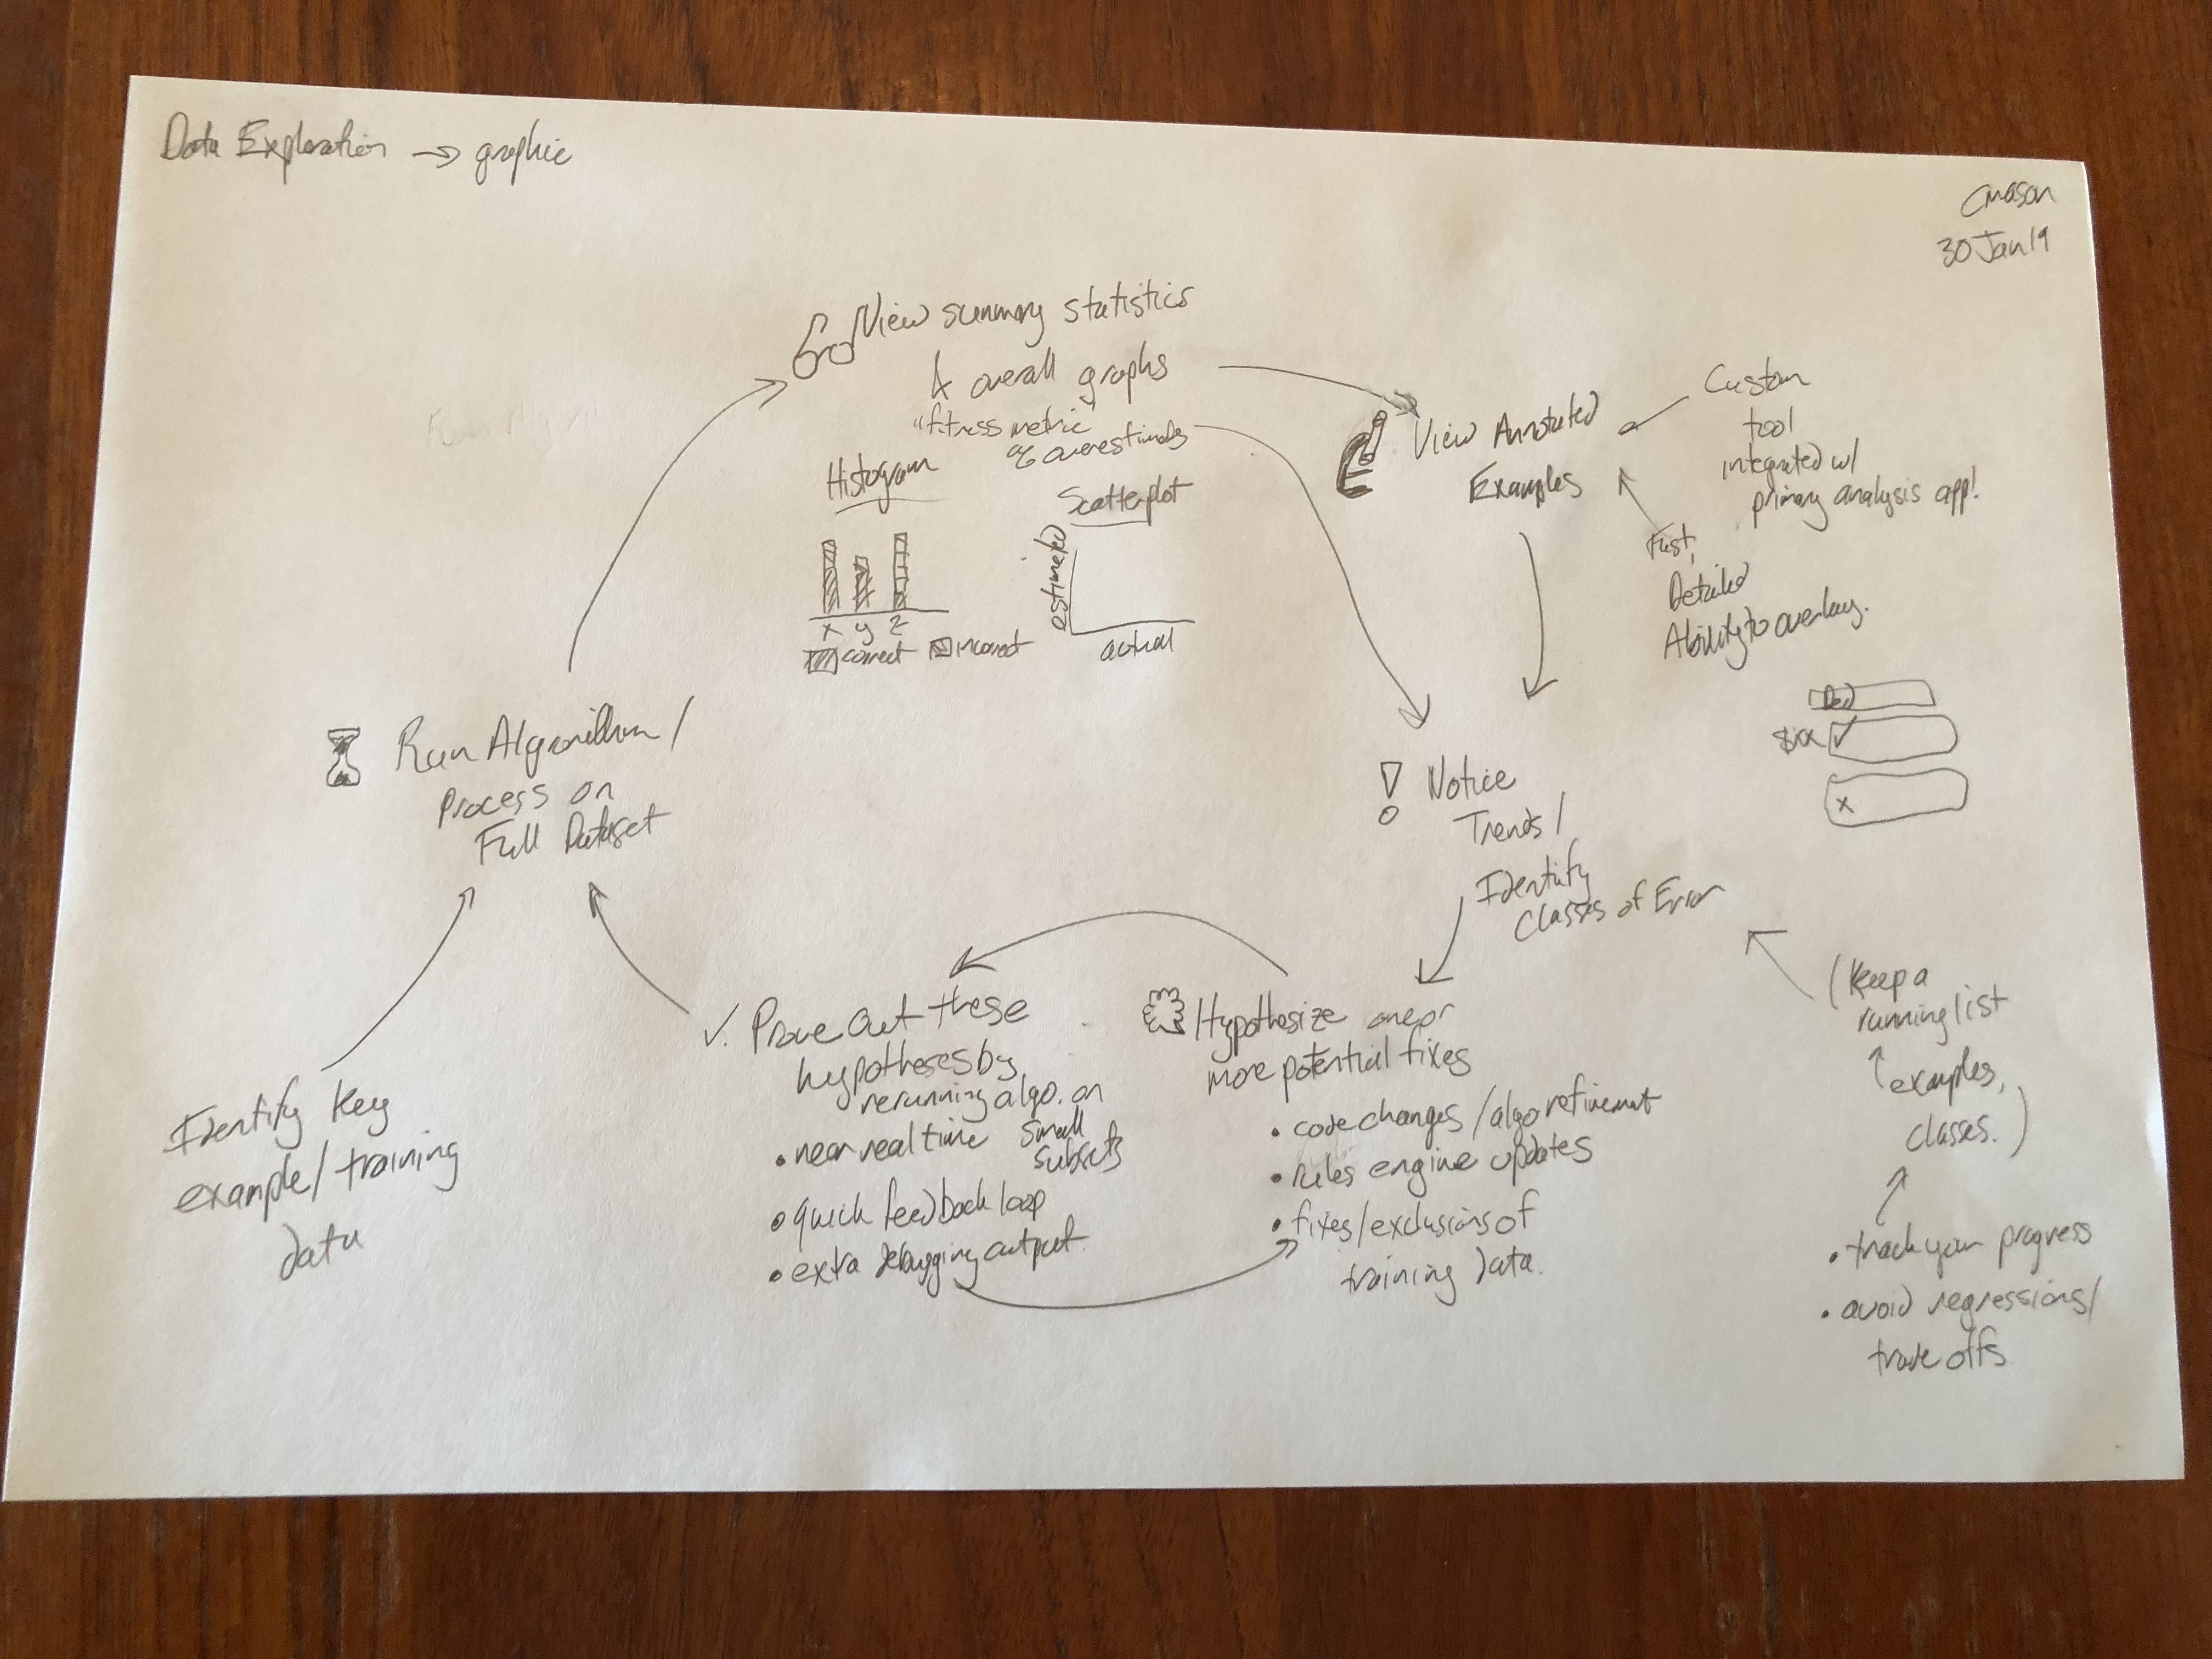 Data Exploration → graphic
Cmason
30 Jan 19
View summary statistics
& overall graphs
"fitness metric"
% overestimates
Histogram
x y z
correct incorrect
Scatterplot
estimated
actual
View Annotated
Examples
Custom
tool
integrated w/
primary analysis app!
Fast,
Detailed
Ability to overlay.
x
Notice
Trends /
Identify
Classes of Error
(Keep a
running list
examples,
classes.)
• track your progress
• avoid regressions/
trade offs
Hypothesize one or
more potential fixes
• code changes / algo refinement
• rules engine updates
• fixes/exclusions of
training data.
✓. Prove out these
hypotheses by
rerunning algo. on
small
subsets
• near real time
• quick feedback loop
• extra debugging output.
Run Algorithm /
Process on
Full Dataset
Identify key
example/training
data